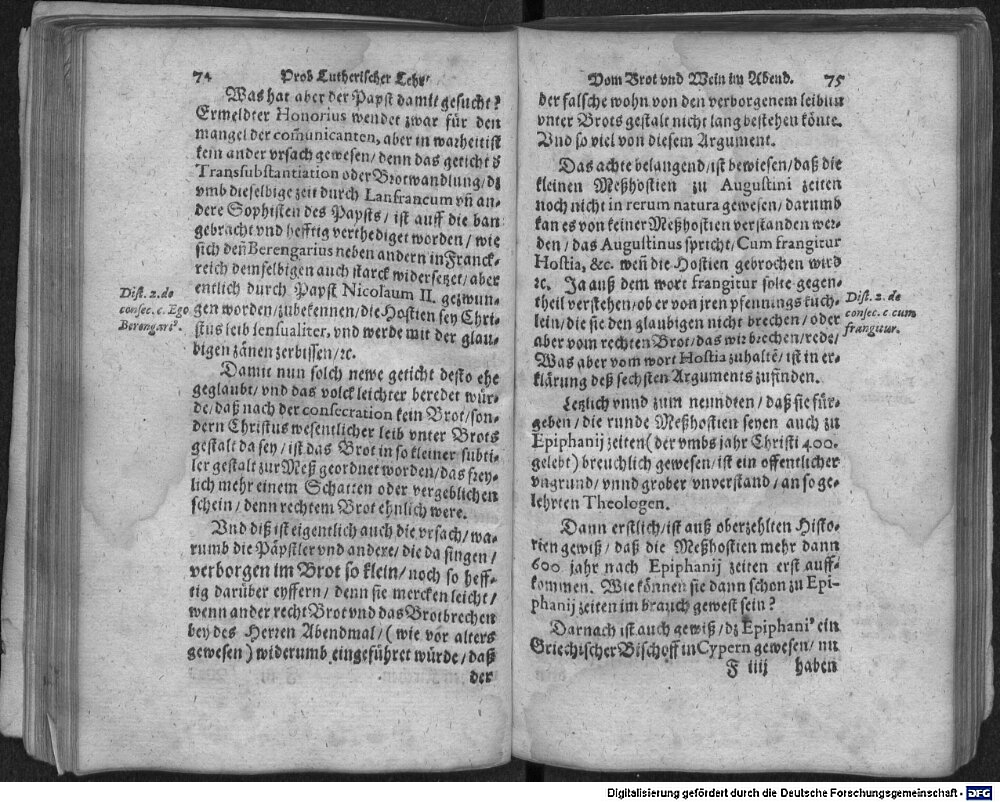 74 Prob Lutherischer Lehr
Was hat aber der Papst damit gesucht?
Ermeldter Honorius wendet zwar für den
mangel der com̃unicanten, aber in warheit ist
kein ander vrsach gewesen/ denn das geticht d̕
Transubstantiation oder Brotwandlung/ dz
vmb dieselbige zeit durch Lanfrancum vñ an-
dere Sophisten des Papsts/ ist auff die ban
gebracht vnd hefftig verthediget worden/ wie
sich den̄ Berengarius neben andern in Franck-
reich demselbigen auch starck widersetzet/ aber
entlich durch Papst Nicolaum II. gezwun-
gen worden/ zubekennen/ die Hostien sey Chri-
stus leib sensualiter, vnd werde mit der glau-
bigen zänen zerbissen/ ꝛc.
Dist. 2. de
consec. c. Ego
Berengari⁹.
Damit nun solch newe geticht desto ehe
geglaubt/ vnd das volck leichter beredet wür-
de/ daß nach der consecration kein Brot/ son-
dern Christus wesentlicher leib vnter Brots
gestalt da sey/ ist das Brot in so kleiner subti-
ler gestalt zur Meß geordnet worden/ das frey-
lich mehr einem Schatten oder vergeblichen
schein/ denn rechtem Brot ehnlich were.
Vnd diß ist eigentlich auch die vrsach/ wa-
rumb die Päpstler vnd andere/ die da singen/
verborgen im Brot so klein/ noch so heff-
tig darüber eyffern/ denn sie mercken leicht/
wenn ander recht Brot vnd das Brotbrechen
bey des Herren Abendmal/ (wie vor alters
gewesen) widerumb eingeführet würde/ daß
der
Vom Brot vnd Wein im Abend. 75
der falsche wohn von den verborgenem leib im
vnter Brots gestalt nicht lang bestehen kön̄te.
Vnd so viel von diesem Argument.
Das achte belangend/ ist bewiesen/ daß die
kleinen Meßhostien zu Augustini zeiten
noch nicht in rerum natura gewesen/ darumb
kan es von keiner Meßhostien verstanden wer-
den/ das Augustinus spricht/ Cum frangitur
Hostia, &c. wen̄ die Hostien gebrochen wird
ꝛc. Ja auß dem wort frangitur solte gegen-
theil verstehen/ ob er von jren pfennings küch-
lein/ die sie den glaubigen nicht brechen/ oder
aber vom rechten Brot/ das wir brechen/ rede/
Was aber vom wort Hostia zuhaltē/ ist in er-
klärung deß sechsten Arguments zufinden.
Dist. 2. de
consec. c. cum
frangitur.
Letzlich vnnd zum neundten/ daß sie für-
geben/ die runde Meßhostien seyen auch zu
Epiphanij zeiten (der vmbs jahr Christi 400.
gelebt) breuchlich gewesen/ ist ein offentlicher
vngrund/ vnnd grober vnverstand/ an so ge-
lehrten Theologen.
Dann erstlich/ ist auß oberzehlten Histo-
rien gewiß/ daß die Meßhostien mehr dann
600 jahr nach Epiphanij zeiten erst auff-
kommen. Wie können sie dann schon zu Epi-
phanij zeiten im brauch gewest sein?
Darnach ist auch gewiß/ dz Epiphani⁹ ein
Griechischer Bischoff in Cypern gewesen/ nu
F iiij haben
Digitalisierung gefördert durch die Deutsche Forschungsgemeinschaft - DFG